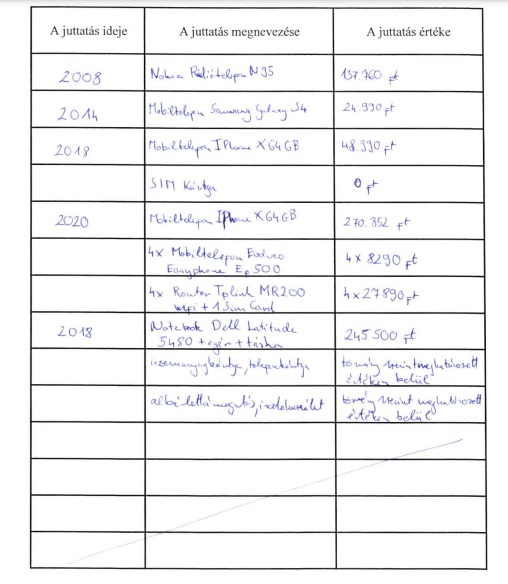 A juttatás ideje A juttatás megnevezése A juttatás értéke
2008 Nokia Rádiótelefon N95 137.760 ft
2014 Mobiltelefon Samsung Galaxy S4 24.990 ft
2018 Mobiltelefon IPhone X 64 GB 48.990 ft
SIM Kártya 0 ft
2020 Mobiltelefon IPhone X 64 GB 270.352 ft
4x Mobiltelefon Evolveo
Easyphone Ep 500 4 x 8290 ft
4x Router Tplink MR200
wifi + 1 Sim Card 4 x 27890 ft
2018 Notebook Dell Latitude
5480 + egér + táska 245 500 ft
üzemanyagkártya, telepkártya törvény szerint meghatározott
értéken belül
törvény szerint meghatározott
értéken belül